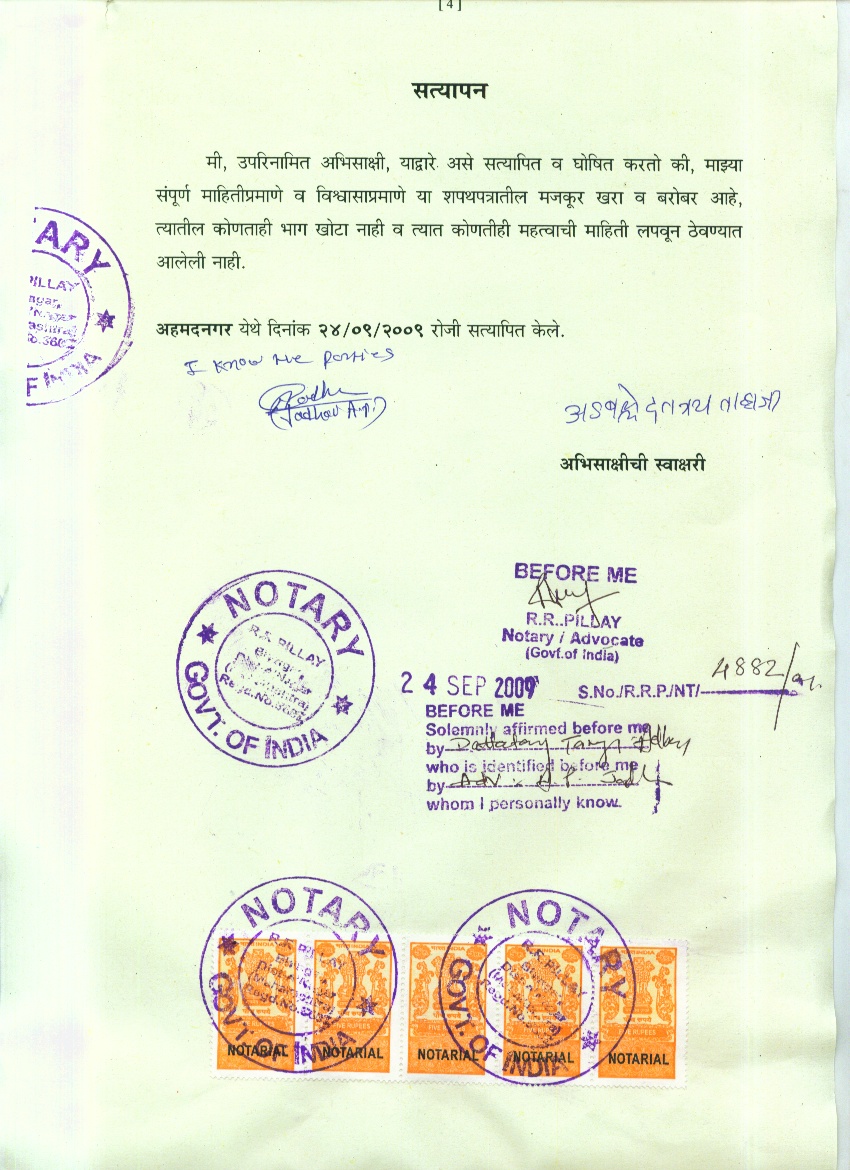 [ 4 ]
सत्यापन
मी, उपरिनामित अभिसाक्षी, याद्वारे असे सत्यापित व घोषित करतो की, माझ्या
संपूर्ण माहितीप्रमाणे व विश्वासाप्रमाणे या शपथपत्रातील मजकूर खरा व बरोबर आहे,
त्यातील कोणताही भाग खोटा नाही व त्यात कोणतीही महत्वाची माहिती लपवून ठेवण्यात
आलेली नाही.
अहमदनगर येथे दिनांक २४/०९/२००९ रोजी सत्यापित केले.
I know the parties
(Jadhav A.P.)
अभिसाक्षीची स्वाक्षरी
TARY
PILLAY
OF INDIA
BEFORE ME
R.R. PILLAY
Notary / Advocate
(Govt.of India)
24 SEP 2009
S.No./R.R.P./NT/ 4882/09.
BEFORE ME
Solemnly affirmed before me
by
who is identified before me
by Adv. A.P. Jadh
whom I personally know.
NOTARY
R.R. PILLAY
GOVT. OF INDIA
NOTARY
R.R. PILLAY
GOVT. OF INDIA
NOTARY
R.R. PILLAY
GOVT. OF INDIA
FIVE RUPEES
NOTARIAL NOTARIAL NOTARIAL NOTARIAL NOTARIAL